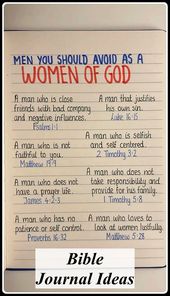 MEN YOU SHOULD AVOID AS A
WOMEN OF GOD
A man who is close
friends with bad company
and negative influences.
Psalms 1:1
A man who is not
faithful to you.
Matthew 19:9
A man who does not
have a prayer life.
James 4:2-3
A man who has no
patience or self control.
Proverbs 16:32
A man that justifies
his own sin.
Luke 16:15
A man who is selfish
and self centered.
2 Timothy 3:2
A man who does not take
responsibility and
provide for his family.
1 Timothy 5:8
A man who loves to
look at women lustfully.
Matthew 5:28
Bible
Journal Ideas